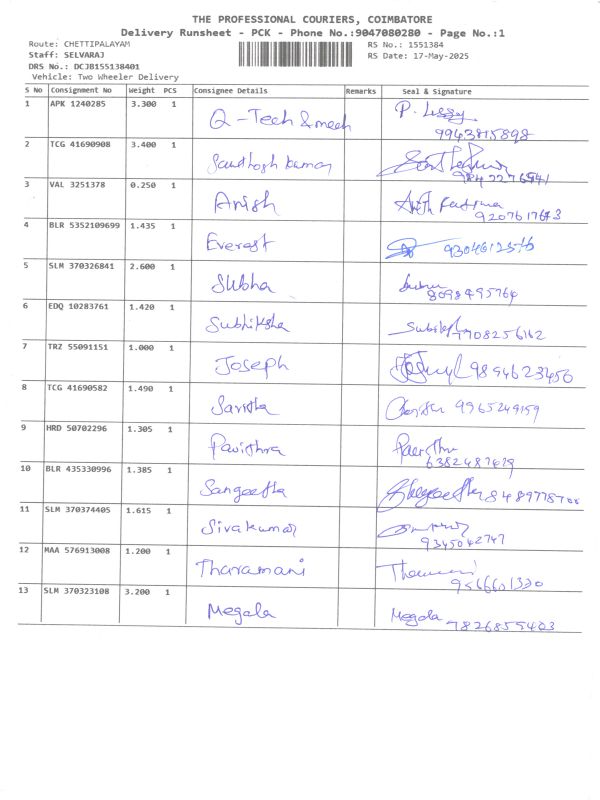 THE PROFESSIONAL COURIERS, COIMBATORE
Delivery Runsheet - PCK - Phone No.:9047080280 - Page No.:1
Route: CHETTIPALAYAM RS No.: 1551384
Staff: SELVARAJ RS Date: 17-May-2025
DRS No.: DCJB155138401
Vehicle: Two Wheeler Delivery
S No Consignment No Weight PCS Consignee Details Remarks Seal & Signature
1 APK 1240285 3.300 1 Q-Tech & mech P. Lissy
9943815898
2 TCG 41690908 3.400 1 Santhosh kumar
9842276941
3 VAL 3251378 0.250 1 Anish
9207617643
4 BLR 5352109699 1.435 1 Everest
5 SLM 370326841 2.600 1 Subha
8098495764
6 EDQ 10283761 1.420 1 Subhiksha
7708256162
7 TRZ 55091151 1.000 1 Joseph 9894623456
8 TCG 41690582 1.490 1 Saritha 9965249159
9 HRD 50702296 1.305 1 Pavithra
6382487479
10 BLR 435330996 1.385 1 Sangeetha
11 SLM 370374405 1.615 1 Sivakumar
9345042747
12 MAA 576913008 1.200 1 Tharamani
13 SLM 370323108 3.200 1 Megala Megala
7826855403